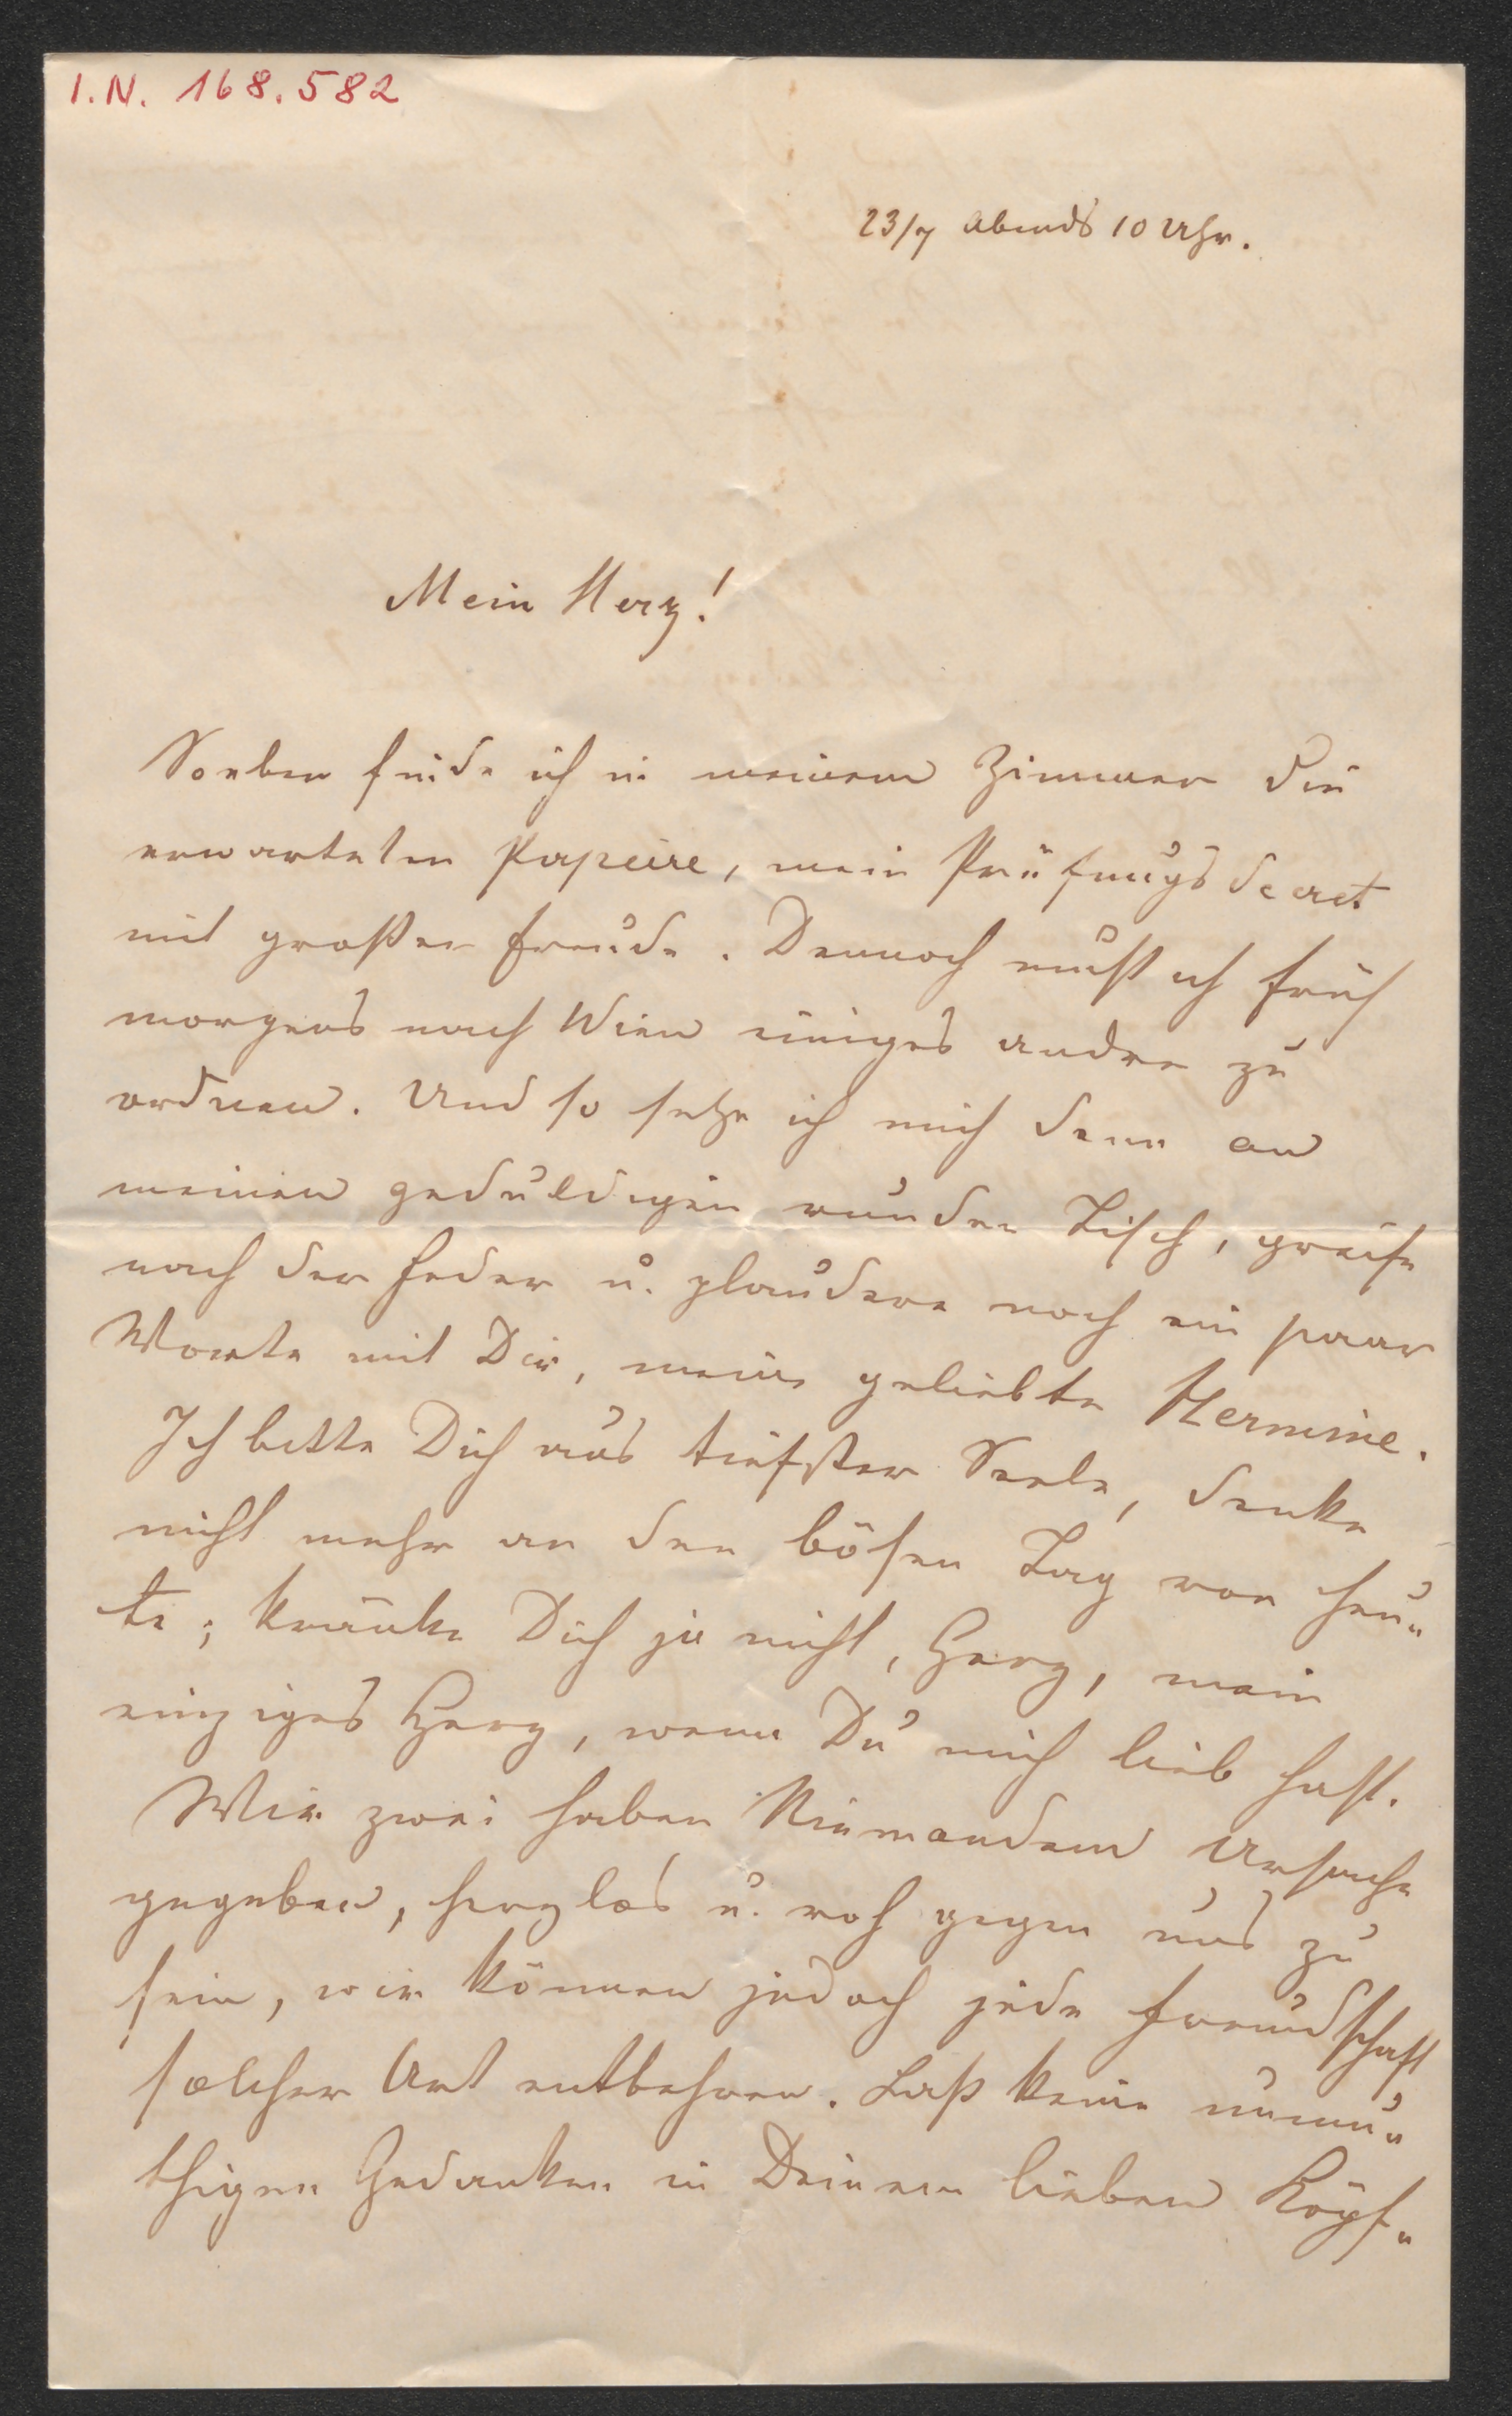 I.N. 168.582
23/7 Abends 10 Uhr.
Mein Herz!
Soeben finde ich in meinem Zimmer die
erwarteten Papiere, mein Prüfungsdecret
mit großer Freude. Dennoch muß ich früh
morgens nach Wien einiges andre zu
ordnen. Und so setze ich mich denn an
meinen geduldigen runden Tisch, greife
nach der Feder u. plaudere noch ein paar
Worte mit Dir, meine geliebte Hermine.
Ich bitte Dich aus tiefster Seele, denke
nicht mehr an den bösen Tag von heu„
te; kränke Dich ja nicht, Herz, mein
einziges Herz, wenn Du mich lieb hast.
Wir zwei haben Niemandem Ursache
gegeben, herzlos u. roh gegen uns zu
sein, wir können jedoch jede Freundschaft
solcher Art entbehren. Laß keine unmu„
thigen Gedanken in Deinem lieben Köpf„